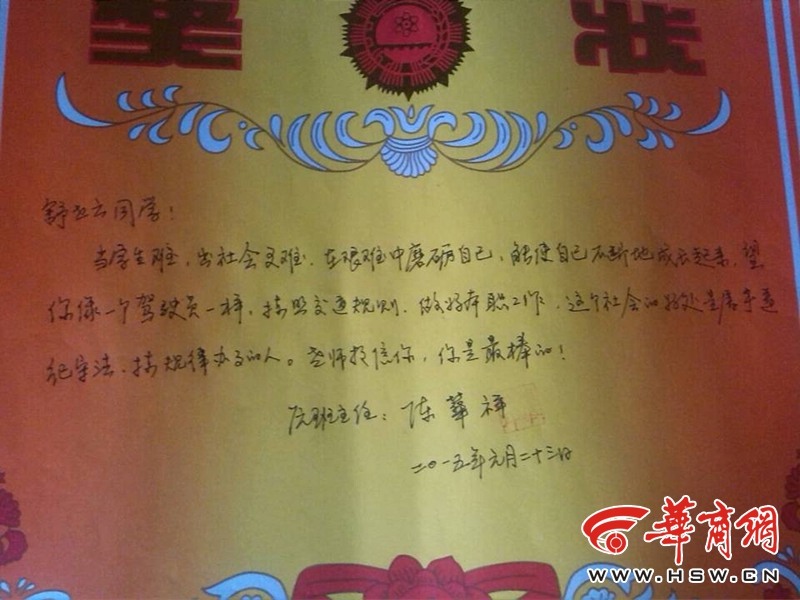 奖 状
舒 云同学！
当学生难，出社会更难，在艰难中磨砺自己，能使自己不断地成长起来，望
你像一个驾驶员一样，按照交通规则，做好本职工作，这个社会的好处是属于遵
纪守法、按规律办事的人。老师相信你，你是最棒的！
原班主任：陈华祥
二〇一五年元月二十三日
华商网
WWW.HSW.CN